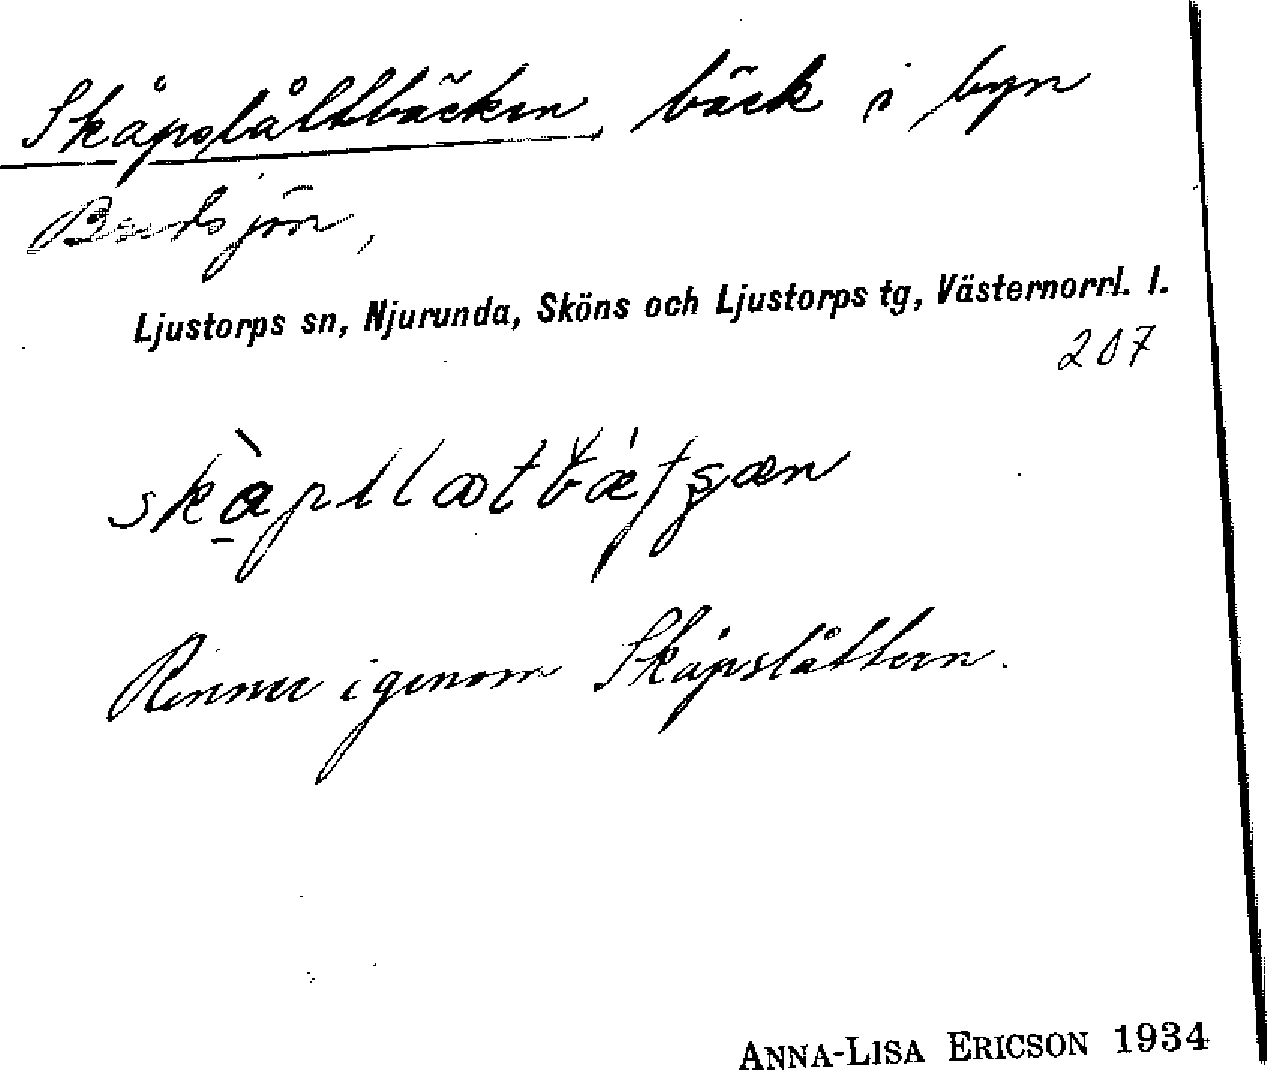 Skåpslåttbäcken, bäck i byn
Bredsjön,
Ljustorps sn, Njurunda, Sköns och Ljustorps tg, Västernorrl. l.
207
Rinner igenom Skåpslåttern.
ANNA-LISA ERICSON 1934